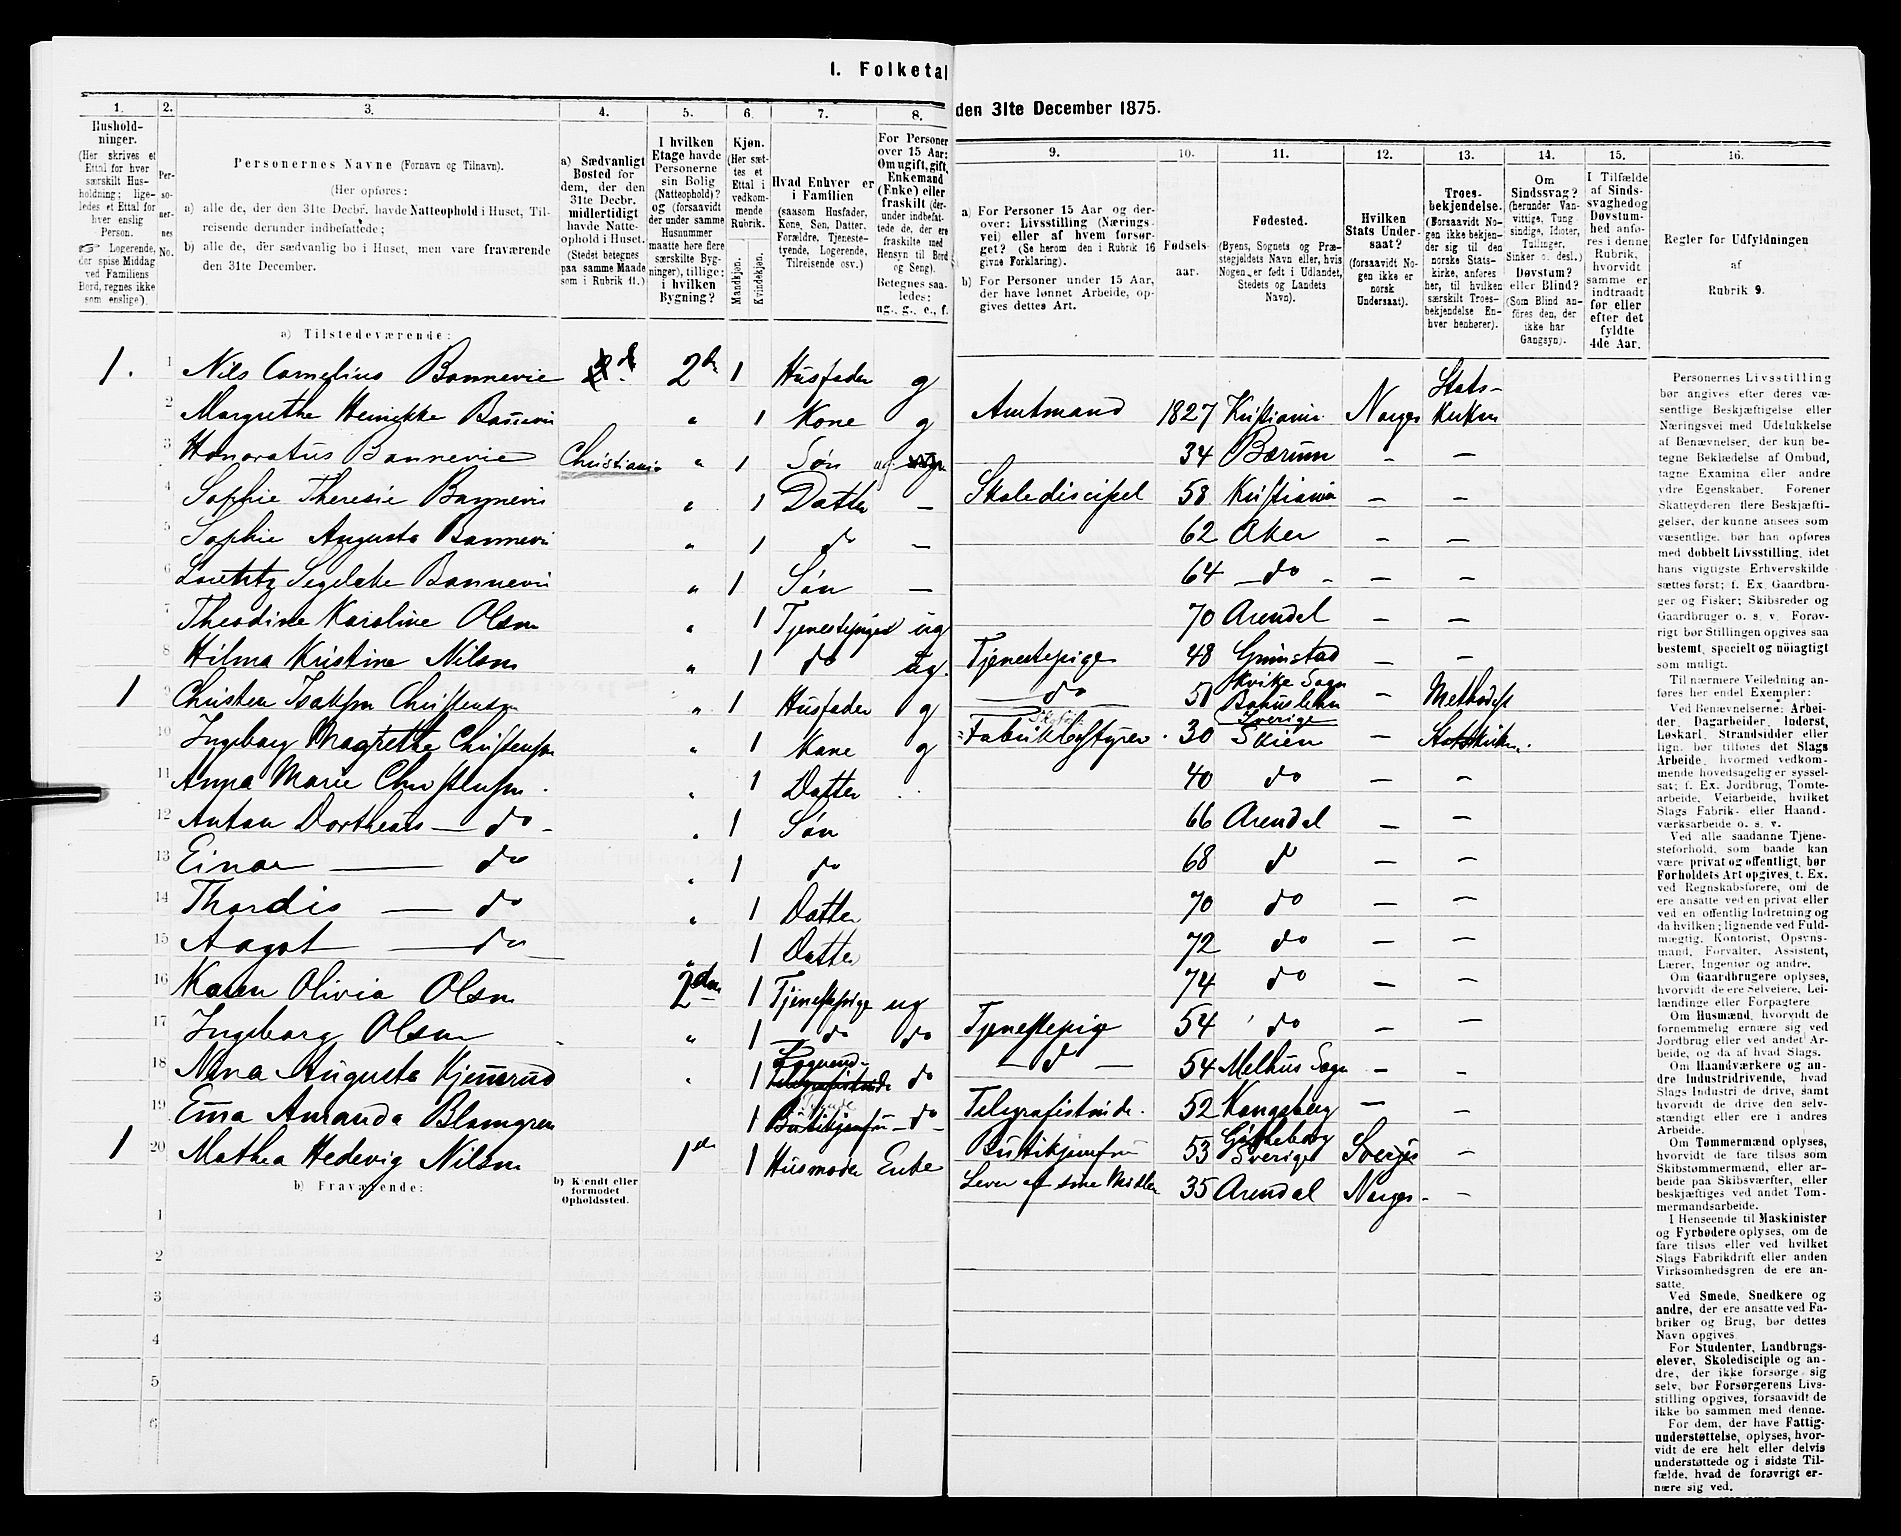 I. Folketal den 31te December 1875.
1. 2. 3. 4. 5. 6. 7. 8. 9. 10. 11. 12. 13. 14. 15. 16.
Hushold-
ninger.
(Her skrives et
Ettal for hver
særskilt Hus-
holdning; lige-
ledes et Ettal for
hver enslig
Person.
☞ Logerende,
der spise Middag
ved Familiens
Bord, regnes ikke
som enslige).
Per-
so-
ner-
nes
No.
Personernes Navne (Fornavn og Tilnavn).
(Her opføres:
a) alle de, der den 31te Decbr. havde Natteophold i Huset, Til-
reisende derunder indbefattede;
b) alle de, der sædvanlig bo i Huset, men vare fraværende
den 31te December.
a) Sædvanligt
Bosted for
dem, der den
31te Decbr.
midlertidigt
havde Natte-
ophold i Huset.
(Stedet betegnes
paa samme Maade
som i Rubrik 11.)
I hvilken
Etage havde
Personerne
sin Bolig
(Natteophold)?
og (forsaavidt
der under samme
Husnummer
maatte høre flere
særskilte Byg-
ninger), tillige:
i hvilken
Bygning?
Kjøn.
(Her sæt-
tes et
Ettal i
vedkom-
mende
Rubrik.
Mandkjøn.
Kvindekjøn.
Hvad Enhver er
i Familien
(saasom Husfader,
Kone, Søn, Datter,
Forældre, Tjeneste-
tyende, Logerende,
Tilreisende osv.)
For Personer
over 15 Aar:
Om ugift, gift,
Enkemand
(Enke) eller
fraskilt (der-
under indbefat-
tede de, der ere
fraskilte med
Hensyn til Bord
og Seng).
Betegnes saa-
ledes:
ug., g., e., f.
a) For Personer 15 Aar og der-
over: Livsstilling (Nærings-
vei) eller af hvem forsør-
get? (Se herom den i Rubrik 16
givne Forklaring).
b) For Personer under 15 Aar,
der have lønnet Arbeide, op-
gives dettes Art.
Fødsels-
aar.
Fødested.
(Byens, Sognets og Præ-
stegjeldets Navn eller, hvis
Nogen er født i Udlandet,
Stedets og Landets
Navn).
Hvilken
Stats Under-
saat?
(forsaavidt No-
gen ikke er
norsk
Undersaat).
Troes-
bekjendelse.
(Forsaavidt No-
gen ikke bekjen-
der sig til den
norske Stats-
kirke, anføres
her, til hvilken
særskilt Troes-
bekjendelse En-
hver henhører).
Om
Sindssvag?
(herunder Van-
vittige, Tung-
sindige, Idioter,
Tullinger,
Sinker o. desl.)
Døvstum?
eller Blind?
(Som Blind an-
føres den, der
ikke har
Gangsyn).
I Tilfælde
af Sinds-
svaghed og
Døvstum-
hed anfø-
res i denne
Rubrik,
hvorvidt
samme er
indtraadt
før eller
efter det
fyldte
4de Aar.
Regler for Udfyldningen
af
Rubrik 9.
a) Tilstedeværende:
1. 1 Nils Cornelius Bonnevie 2den 1 Husfader g Amtmand 1827 Kristiania Norges Stats-Kirken
2 Margrethe Bonnevie " 1 Kone g 34 Bærum – –
3 Honoratus Bonnevie Christiania " 1 Søn ug Skolediscipel 58 Kristiania – –
4 Sophie Theresie Bonnevie " 1 Datter – 62 Aker – –
5 Sophie Augusta Bonnevie " 1 do – 64 – do – – –
6 Bonnevie " 1 Søn – 70 Arendal – –
7 Theodine Karoline Olsen " 1 Tjenestepige ug Tjenestepige 48 Grimstad – –
8 Hilma Kristine Nilsen " 1 do ug. – do – Sogn Bohuslehn Sverige – Methodist
1 9 Christen Isaksen Christensen " 1 Husfader g Fabrikbestyrer 30 Skien – Statskirken.
10 Ingeborg Magrethe Christensen " 1 Kone g 40 do – –
11 Anna Marie Christensen " 1 Datter 66 Arendal – –
12 Anton Dortheus – do – " 1 Søn 68 do – –
13 Einar – do " 1 do 70 do – –
14 Thordis – do " 1 Datter 72 do – –
15 Aagot – do – " 1 Datter 74 do – –
16 Karen Olivia Olsen 2den 1 Tjenestepige ug Tjenestepige 54 do – –
17 Ingeborg Olsen " 1 do do – do – 54 Melhus Sogn – –
18 Nina Augusta Kjennerud " 1 Logerende Telegrafistinde do Telegrafistinde. 52 Kongsberg – –
19 Ema Amanda Blomgren 1 Butikjomfru – do – Butikjomfru 53 Gøtheborg Sverige Sverige –
1 20 Mathea Hedevig Nilsen 1ste 1 Husmoder Enke Lever af sine Midler 35 Arendal Norges –
b) Fraværende:
b) Kjendt eller
formodet
Opholdssted.
1
2
3
4
5
6
Personernes Livsstilling
bør angives efter deres væ-
sentlige Beskjæftigelse eller
Næringsvei med Udelukkelse
af Benævnelser, der kun be-
tegne Beklædelse af Ombud,
tagne Examina eller andre
ydre Egenskaber. Forener
Skatteyderen flere Beskjæfti-
gelser, der kunne ansees som
væsentlige, bør han opføres
med dobbelt Livsstilling, idet
hans vigtigste Erhvervskilde
sættes først; f. Ex. Gaardbru-
ger og Fisker; Skibsreder og
Gaardbruger o. s. v. Forøv-
rigt bør Stillingen opgives saa
bestemt, specielt og nøiagtigt
som muligt.
Til nærmere Veiledning an-
føres her endel Exempler:
Ved Benævnelserne: Arbei-
der, Dagarbeider, Inderst,
Løskarl, Strandsidder eller
lign. bør tilføres det Slags
Arbeide, hvormed vedkom-
mende hovedsagelig er syssel-
sat; f. Ex. Jordbrug, Tomte-
arbeide, Veiarbeide, hvilket
Slags Fabrik- eller Haand-
værksarbeide o. s. v.
Ved alle saadanne Tjene-
steforhold, som baade kan
være privat og offentligt, bør
Forholdets Art opgives, t. Ex.
ved Regnskabsførere, om de
ere ansatte ved en privat eller
ved en offentlig Indretning og
da hvilken; lignende ved Fuld-
mægtig, Kontorist, Opsyns-
mand, Forvalter, Assistent,
Lærer, Ingeniør og andre.
Om Gaardbrugere oplyses,
hvorvidt de ere Selveiere, Lei-
lændinge eller Forpagtere
Om Husmænd, hvorvidt de
fornemmelig ernære sig ved
Jordbrug eller ved andet Ar-
beide, og da af hvad Slags.
Om Haandværkere og an-
dre Industridrivende, hvad
Slags Industri de drive, samt
hvorvidt de drive den selv-
stændigt eller ere i andres
Arbeide.
Om Tømmermænd oplyses,
hvorvidt de fare tilsøs som
Skibstømmermænd, eller ar-
beide paa Skibsværfter, eller
beskjæftiges ved andet Tøm-
mermandsarbeide.
I Henseende til Maskinister
og Fyrbødere oplyses, om de
fare tilsøs eller ved hvilket
Slags Fabrikdrift eller anden
Virksomhedsgren de ere an-
satte.
Ved Smede, Snedkere og
andre, der ere ansatte ved Fa-
briker og Brug, bør dettes
Navn opgives
For Studenter, Landbrugs-
elever, Skoledisciple og an-
dre, der ikke forsørge sig
selv, bør Forsørgerens Livs-
stilling opgives, forsaavidt de
ikke bo sammen med denne.
For dem, der have Fattig-
understøttelse, oplyses, hvor-
vidt de ere helt eller delvis
understøttede og i sidste Til-
fælde, hvad de forøvrigt er-
nære sig ved.